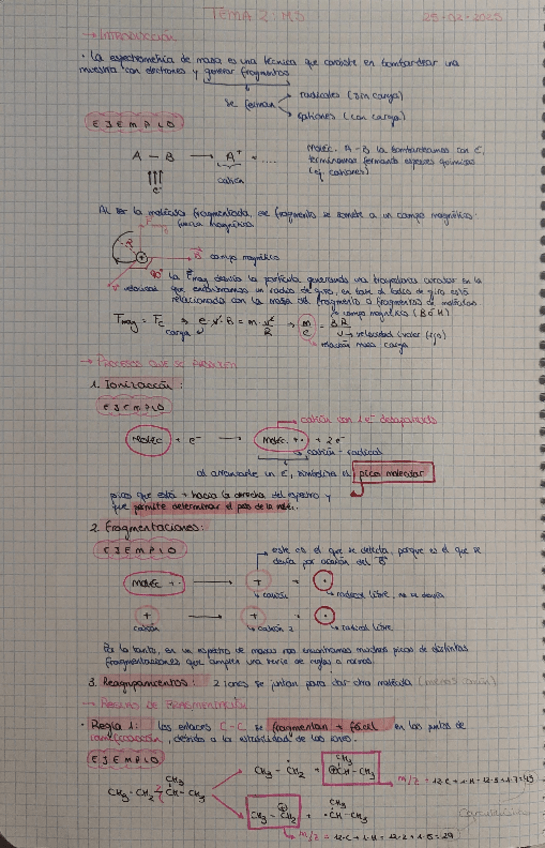 TEMA 2: MS 25-02-2025
→ INTRODUCCIÓN
· La espectrometría de masa es una técnica que consiste en bombardear una
muestra con electrones y generar fragmentos
se forman
radicales (sin carga)
cationes (con carga)
EJEMPLO
A - B → A⁺ + ....
catión
e⁻
Moléc. A-B la bombardeamos con e⁻,
terminamos formando especies químicas
(ej. cationes)
Al ser la molécula fragmentada, ese fragmento se somete a un campo magnético.
fuerza magnética
B campo magnético
90°
velocidad
la Fmag desvía la partícula generando una trayectoria circular en la
que encontramos un radio de giro, en base al radio de giro está
relacionada con la masa del fragmento o fragmentos de moléculas.
campo magnético (B o H)
Fmag = Fc ⇒ e·v·B = m·v²/R ⇒ m/e = B·R/v
carga
v → velocidad (valor fijo)
relación masa carga
→ PROCESOS QUE SE
1. Ionización:
EJEMPLO
catión con 1e⁻ desapareado
Moléc + e⁻ → Moléc. +· + 2e⁻
catión-radical
al arrancarle un e⁻, simboliza el pico molecular
pico que está + hacia la derecha del espectro y
que permite determinar el peso de la moléc.
2. Fragmentaciones:
EJEMPLO
este es el que se detecta, porque es el que se
desvía por acción del B
Moléc +· → + + ·
catión
radical libre, no se desvía
+ → + + ·
catión
catión 2
radical libre
Por lo tanto, en un espectro de masas nos encontramos muchos picos de distintas
fragmentaciones que cumplen una serie de reglas o normas.
3. Reagrupamientos: 2 iones se juntan para dar otra molécula (menos común)
→ REGLAS DE FRAGMENTACIÓN
· Regla 1: los enlaces C-C se fragmentan + fácil en los puntos de
ramificación, debido a la estabilidad de los iones.
EJEMPLO
CH₃
CH₃-CH₂-CH-CH₃
CH₃-CH₂ +
CH₃
CH-CH₃
m/z = 12·C + 1·H = 12·3 + 1·7 = 43
CH₃-CH₂ +
CH₃
·CH-CH₃
m/z = 12·C + 1·H = 12·2 + 1·5 = 29